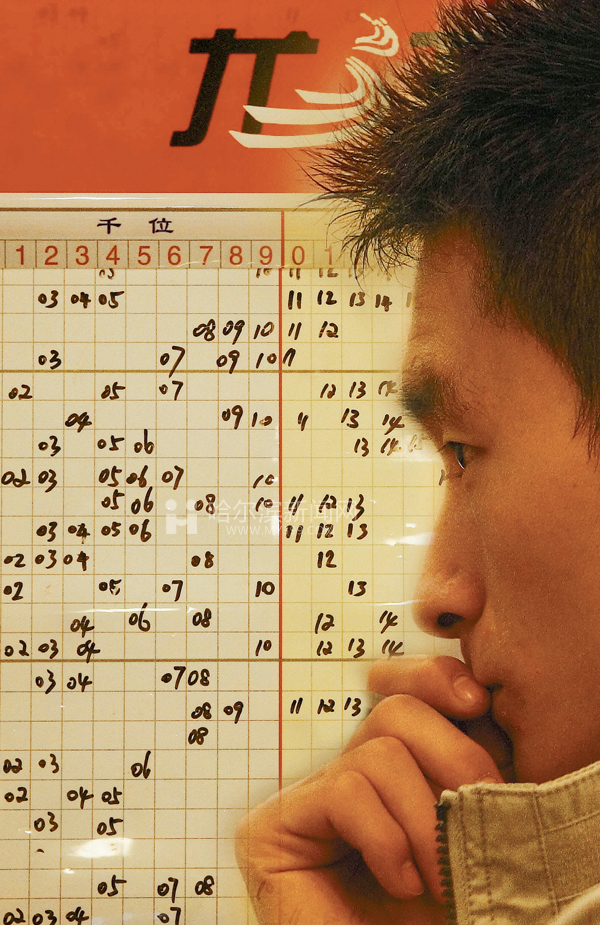 千位
1 2 3 4 5 6 7 8 9 0 1
10 11 12 13
03 04 05 11 12 13 14
08 09 10 11 12
03 07 09 10 11
02 05 07 12 13 14
04 09 10 11 13 14
03 05 06 13 14 15
02 03 05 06 07 10
05 06 08 10 11 12 13
哈尔滨新闻网
03 04 05 06 11 12 13
02 03 04 08 12
02 05 07 10 13
04 06 08 12 14
02 03 04 10 12 13 14
03 04 07 08
08 09 11 12 13
08
02 03 06
02 04 05
03 05
05 07 08
02 03 04 07